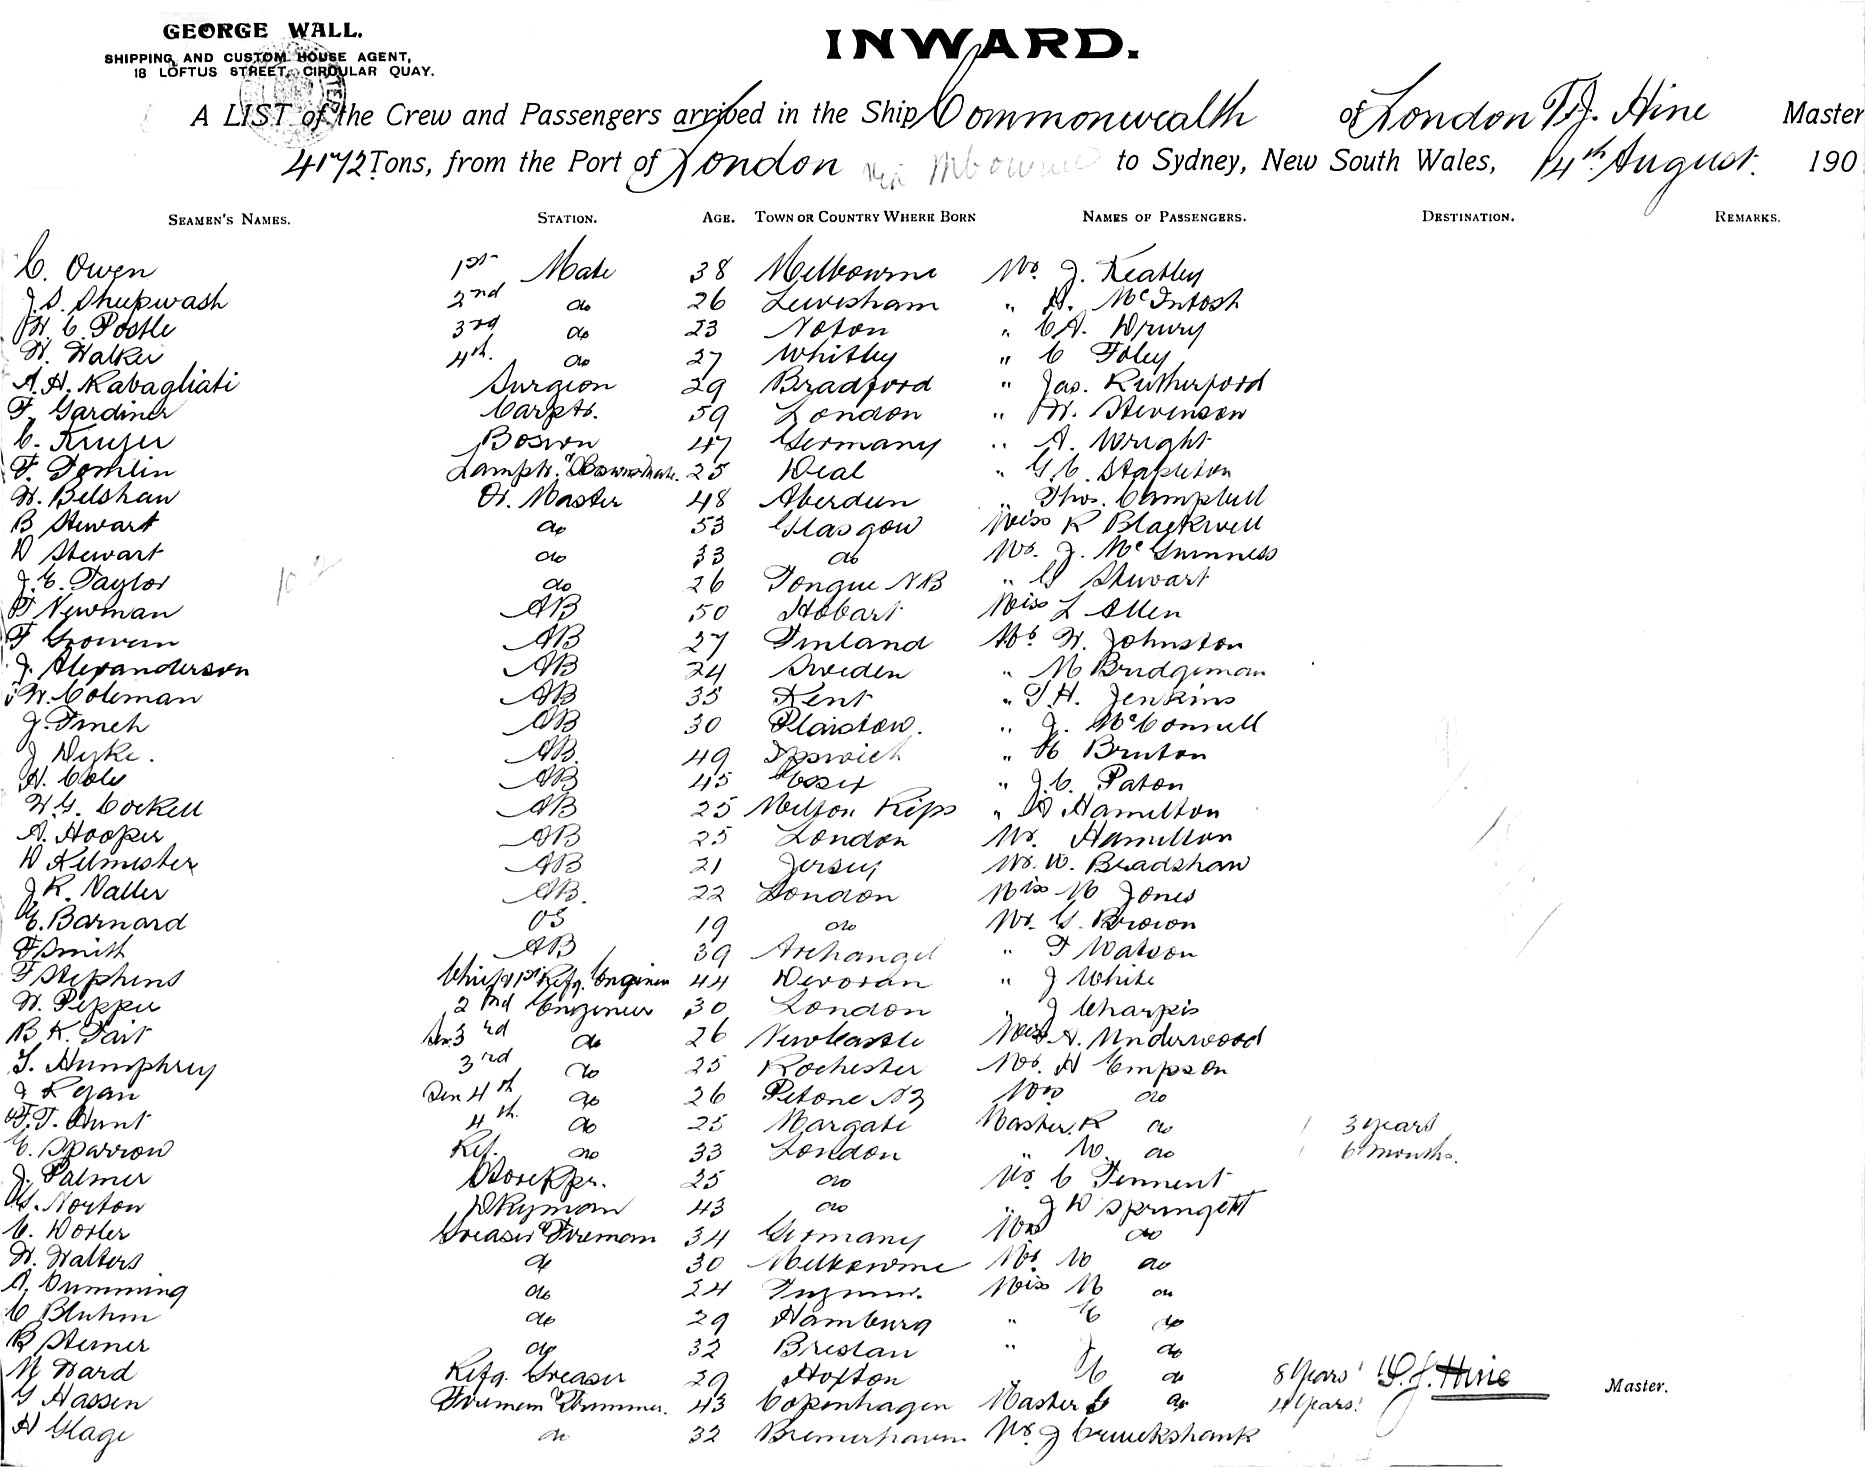 GEORGE WALL.
SHIPPING AND CUSTOM HOUSE AGENT,
18 LOFTUS STREET, CIRCULAR QUAY.
INWARD.
A LIST of the Crew and Passengers arrived in the Ship Commonwealth of London T.J. Hine Master
4172 Tons, from the Port of London via Mbourne to Sydney, New South Wales, 14th August. 190
SEAMEN'S NAMES. STATION. AGE. TOWN OR COUNTRY WHERE BORN NAMES OF PASSENGERS. DESTINATION. REMARKS.
C. Owen 1st Mate 38 Melbourne Mr. J. Keatley
J.S. Sheepwash 2nd do 26 Lewisham " H. McIntosh
W. C. Postle 3rd do 23 " C.A. Drury
W. Walker 4th. do 27 Whitby " C Foley
A.H. Rabagliati Surgeon 29 Bradford " Jas. Rutherford
F. Gardiner Carptr. 59 London " W. Stevenson
C. Kruger Boswn 47 Germany " A. Wright
F. Tomlin Lamptr. & Boswn Mate. 25 Deal " G.C. Stapleton
W. Belshaw Qr. Master 48 Aberdeen " Thos. Campbell
B Stewart do 53 Glasgow Miss K Blackwell
D Stewart do 33 do Mr. J. McGuinness
J.G. Taylor do 26 Tongue NB " G Stewart
T Newman AB 50 Hobart Miss L Allen
F AB 27 Finland Mr. W. Johnston
J. Alexanderson AB 24 Sweden " M Bridgeman
W. Coleman AB 35 Kent " T.H. Jenkins
J. Finch AB 30 Plaistow. " J. McConnell
J Dyke. AB. 49 Ipswich " H Bruton
H. Coles AB 45 Essex " J.C. Paton
W.G. Cockell AB 25 Milton Regis " D Hamilton
A. Hooper AB 25 London Mr. Hamilton
D Kilmister AB 21 Jersey Mr. W. Bradshaw
J.R. Valler AB. 22 London Miss M Jones
E. Barnard OS 19 do Mr. G. Brown
F Smith AB 39 Archangel " F Watson
F Stephens Chief & 1st Refg. Engineer 44 Devoran " J White
W. Pepper 2nd Engineer 30 London " J Charpis
B K. Tait Sen 3rd do 26 NewCastle Miss A. Underwood
T. Humphrey 3rd do 25 Rochester Mr. H Empson
J Regan Sen 4th do 26 Petone NZ Mrs do
F.T. Hunt 4th. do 25 Margate Master. R do 3 years
C. Sparrow Ref. do 33 London " M. do 6 months.
J. Palmer Storekpr. 25 do Mr. C Tennent
G. Norton Dkyman 43 do " J W Springett
C. Dorler Greaser & Fireman 34 Germany Mrs do
W. Walters do 30 Melbourne Mr. M do
A. Cumming do 24 Miss M do
C Bluhm do 29 Hamburg " E do
R Sterner do 32 Breslau " J do
M Ward Refg. Greaser 29 Hoxton " C do 8 years T.J. Hine Master.
G Hassen Firemen & Trimmer. 43 Copenhagen Master G do 11 years.
H Glage do 32 Bremerhaven Mr. J Cruickshank